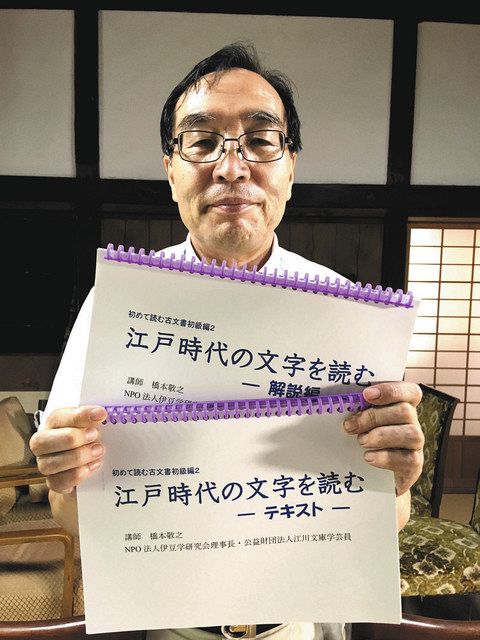 初めて読む古文書初級編2
江戸時代の文字を読む
― 解説編
講師 橋本敬之
NPO法人伊豆学研
初めて読む古文書初級編2
江戸時代の文字を読む
― テキスト ―
講師 橋本敬之
NPO法人伊豆学研究会理事長・公益財団法人江川文庫学芸員